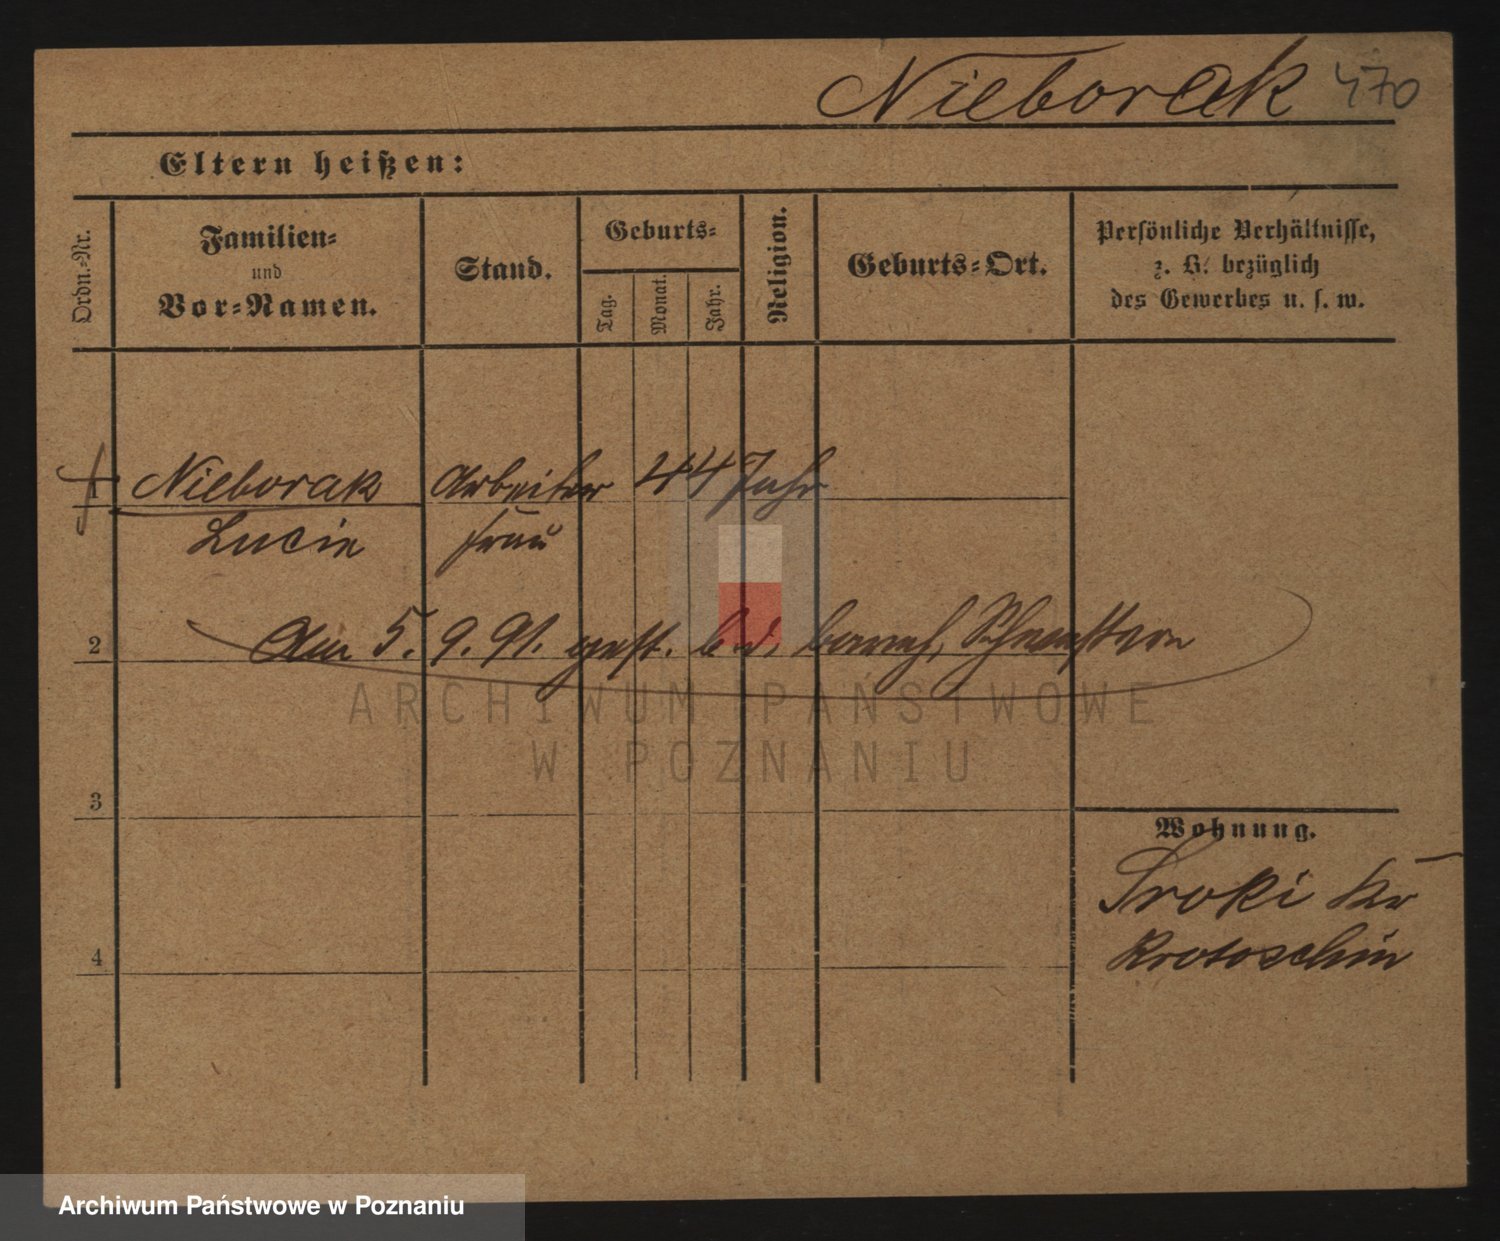 Nieborak 470
Eltern heißen:
Ordn.-Nr.
Familien-
und
Vor-Namen.
Stand.
Geburts-
Tag.
Monat.
Jahr.
Religion.
Geburts-Ort.
Persönliche Verhältnisse,
z. B. bezüglich
des Gewerbes u. s. w.
1 Nieborak Arbeiter 44 Jahr
Lucie frau
2 Am 5. 9. 91. gest. b. d. barmh. Schwestern
ARCHIWUM PAŃSTWOWE
W POZNANIU
3
Wohnung.
Sroki Kr
Krotoschin
4
Archiwum Państwowe w Poznaniu